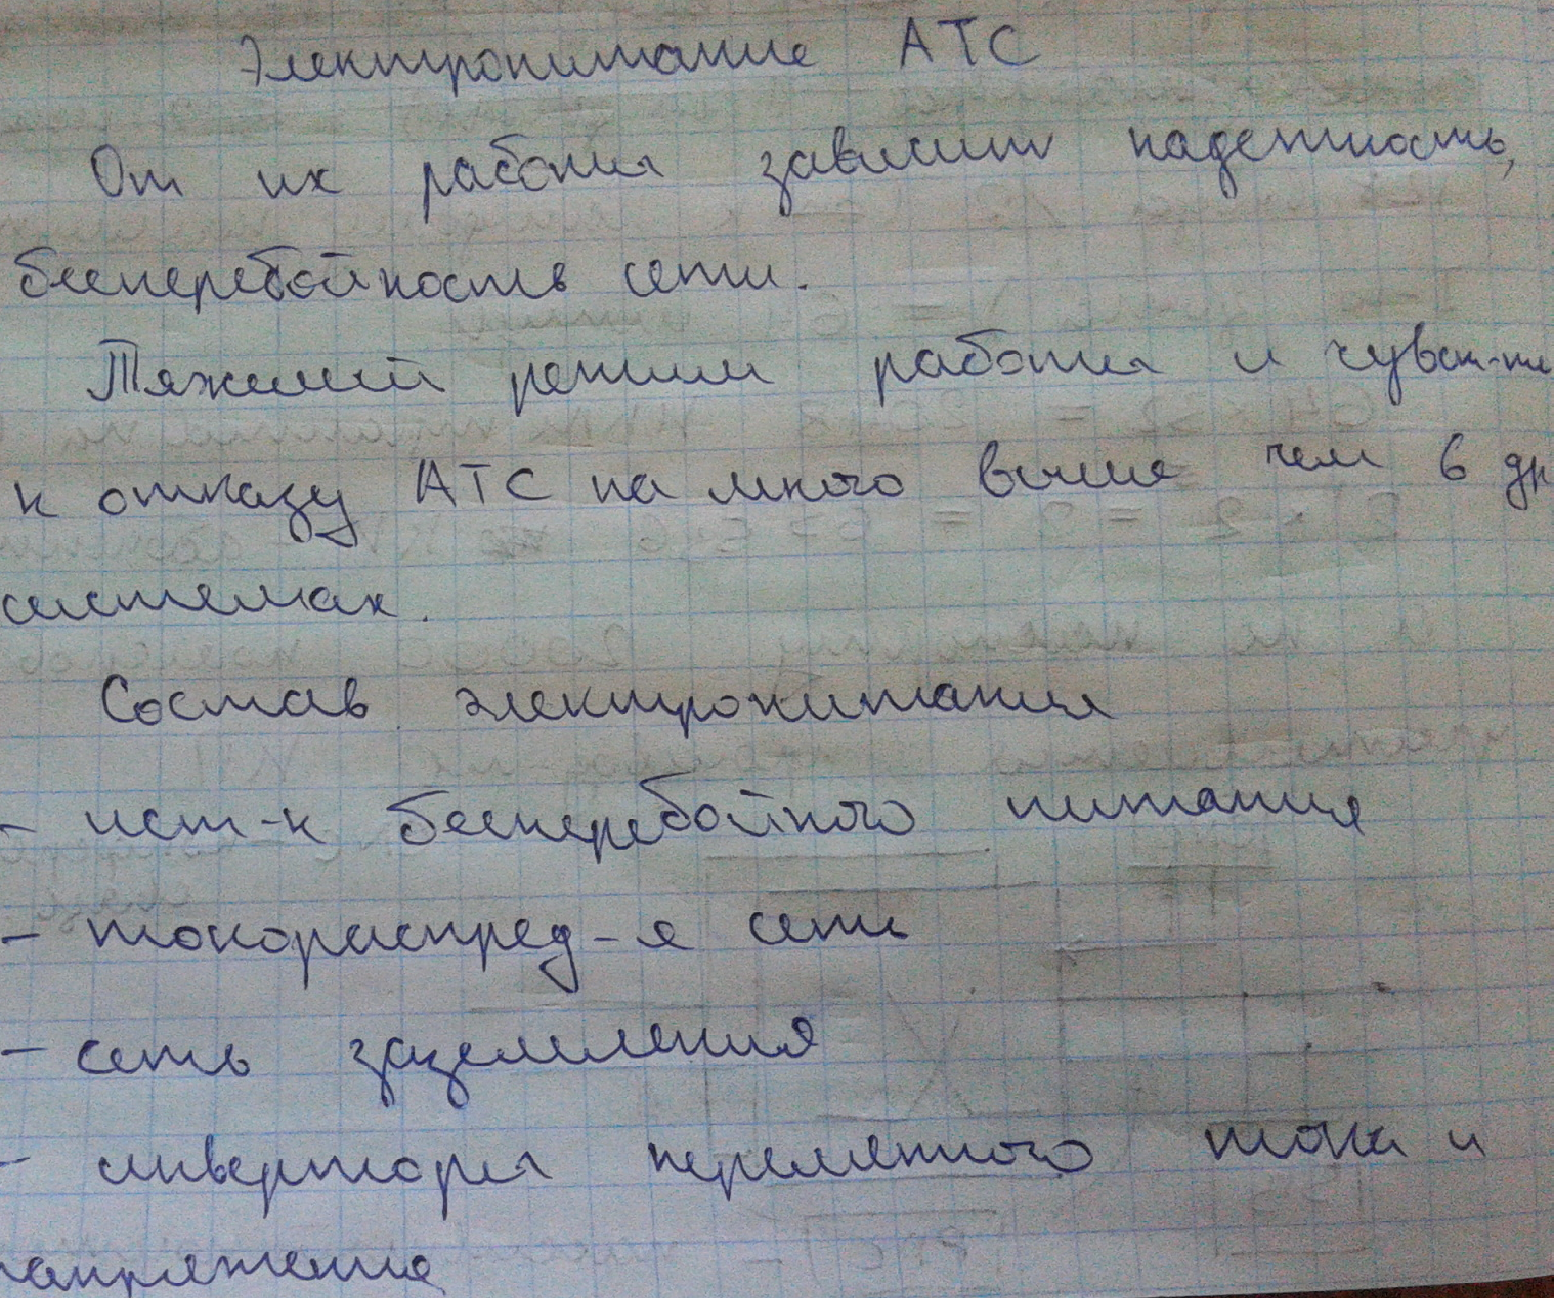 Электропитание АТС
От их работы зависит надежность,
бесперебойность сети.
Тяжелый режим работы и чувст-ть
к отказу АТС на много выше чем в др
системах.
Состав электропитания
- ист-к бесперебойного питания
- токораспред-я сеть
- сеть заземления
- инверторы переменного тока и
напряжения